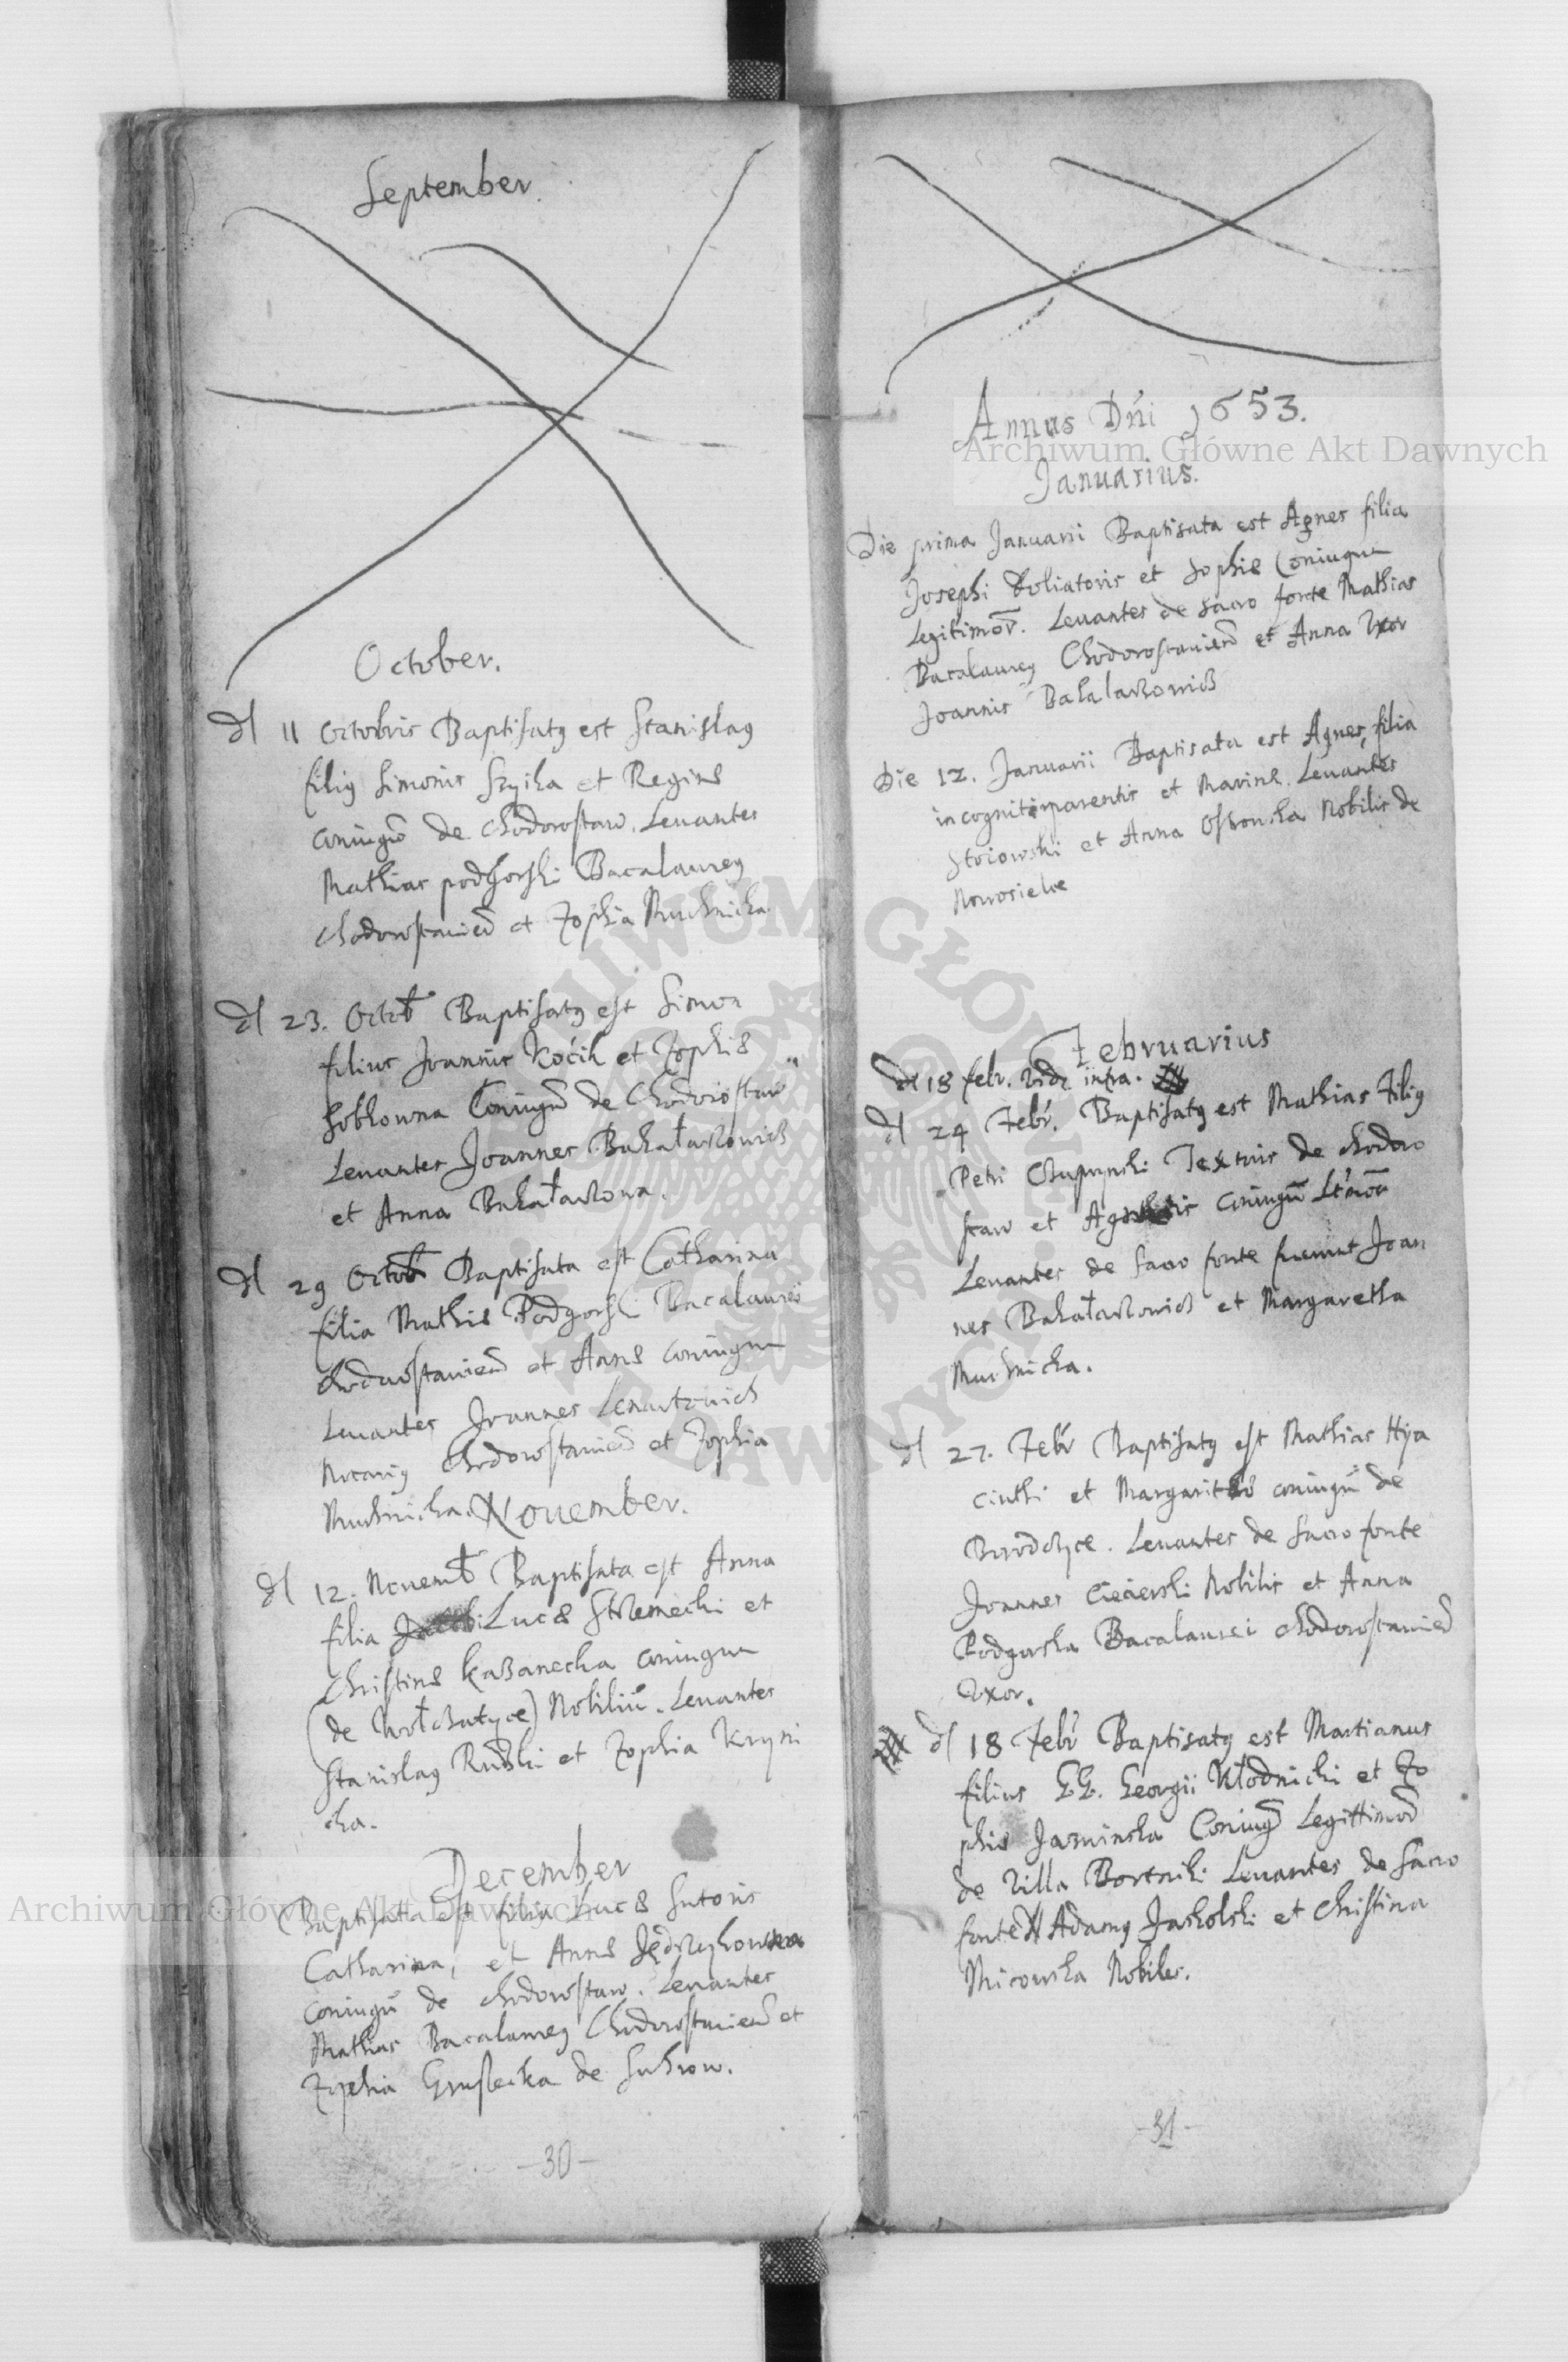 September.
October.
dl 11 Octobris Baptisatq est Stanislaq
filiq Simonis Szyika et Reginæ
coniugũ de Chodorostaw. Leuantes
Mathias podgorski Bacalaureq
Chodorostauien et Zophia Muchnicka
dl 23. Octob Baptisatq est Simon
filius Joannis Kocik et Zophiæ
Sobkowna Coniugũ de Chodorostaw
Leuantes Joannes Bakałarzowicz
et Anna Bakałarzowa.
dl 29 Octob Baptisata est Catharina
filia Mathiæ Podgorski Bacalaurei
Chodorostauien et Annæ coniugum
Leuantes Joannes Lenartowicz
Notariq Chodorostauien et Zophia
Muchnicka. Nouember.
dl 12. Nouemb Baptisata est Anna
filia Lucæ Strzemecki et
Christinæ Kaszanecka coniugum
(de Wołczatycze) Nobiliũ. Leuantes
Stanislaq Rudzki et Zophia Kryni
cka.
December
Baptisata est filia Lucæ Sutoris
Catharina, et Annæ Jędrzychowna
coniugũ de Chodorostaw. Leuantes
Mathias Bacalaureq Chodorostauien et
Zophia Gruszecka de Suchrow.
-30-
Annus Dńi 1653.
Januarius.
Die prima Januarii Baptisata est Agnes filia
Josephi Doliatoris et Sophiæ Coniugum
Legitimoř. Leuantes de sacro fonte Mathias
Bacalaureq Chodorostauien et Anna Vxor
Joannis Bakalarzowicz
Die 12. Januarii Baptisata est Agnes, filia
incogniti parentis et Marinæ. Leuantes
Stoiowski et Anna Ossowska Nobilis de
Nowosielce
Februarius
dl 18 febr. vide infra.
dl 24 Febr. Baptisatq est Mathias Filiq
Petri Czuprynski Textoris de Chodoro
staw et Agnetis coniugũ Ltmoř
Leuantes de Sacro fonte fuerunt Joan
nes Bakałarzowicz et Margaretha
Muchnicka.
dl 27. Febr Baptisatq est Mathias Hya
cinthi et Margarithæ coniugũ de
Borodczyce. Leuantes de Sacro fonte
Joannes Ciecierski Nobilis et Anna
Podgorska Bacalaurei Chodorostauien
Vxor.
dl 18 Febr Baptisatq est Martianus
filius GG. Georgii Kłodnicki et Zo
phiæ Jasminska Coniug Legittimor
de Villa Bortniki Leuantes de Sacro
fonte Adamq Jaskolski et Christina
Micowska Nobiles.
-31-
Archiwum Główne Akt Dawnych
Archiwum Główne Akt Dawnych
ARCHIWUM GŁÓWNE AKT DAWNYCH